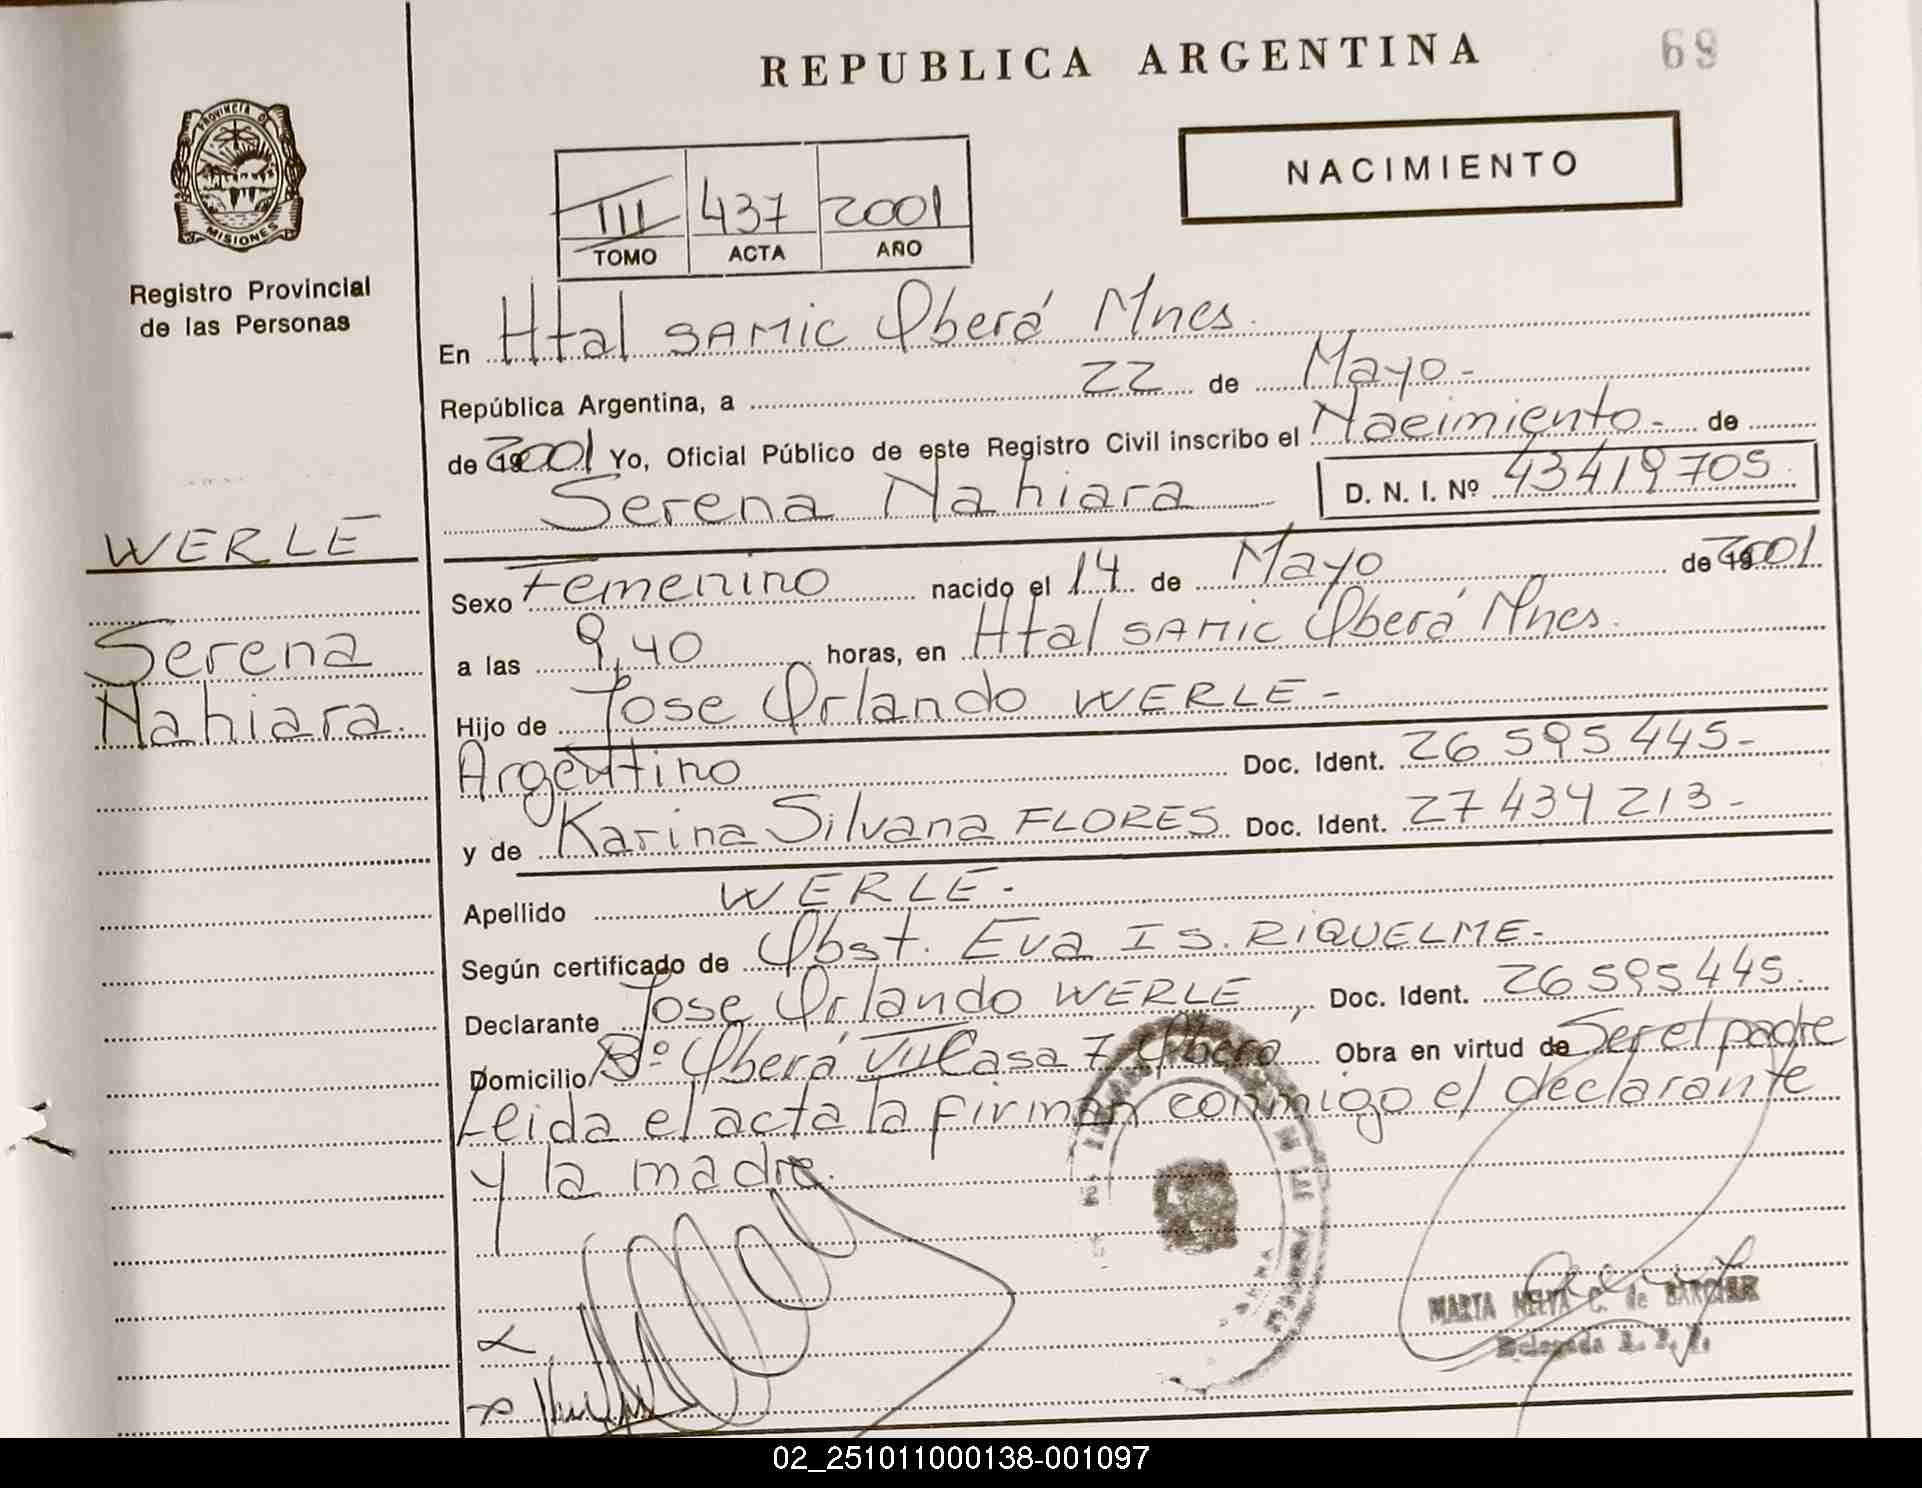 REPUBLICA ARGENTINA
69
PROVINCIA DE
MISIONES
Registro Provincial
de las Personas
NACIMIENTO
III 437 2001
TOMO ACTA AÑO
En Htal SAMIC Oberá Mnes.
República Argentina, a 22 de Mayo-
de 2001 Yo, Oficial Público de este Registro Civil inscribo el Nacimiento- de
Serena Nahiara D. N. I. Nº 43419705.
WERLE
Serena
Nahiara.
Sexo Femenino nacido el 14 de Mayo de 2001
a las 9,40 horas, en Htal SAMIC Oberá Mnes.
Hijo de Jose Orlando WERLE-
Argentino Doc. Ident. 26 595 445-
y de Karina Silvana FLORES Doc. Ident. 27 434 213-
Apellido WERLE-
Según certificado de Obst. Eva IS. RIQUELME-
Declarante Jose Orlando WERLE, Doc. Ident. 26 595 445.
Domicilio Bº Oberá VII Casa 7 Oberá Obra en virtud de Ser el padre
Leida el acta la firman conmigo el declarante
y la madre.
MARTA NELYA C. de
Delegada R. P. P.
02_251011000138-001097